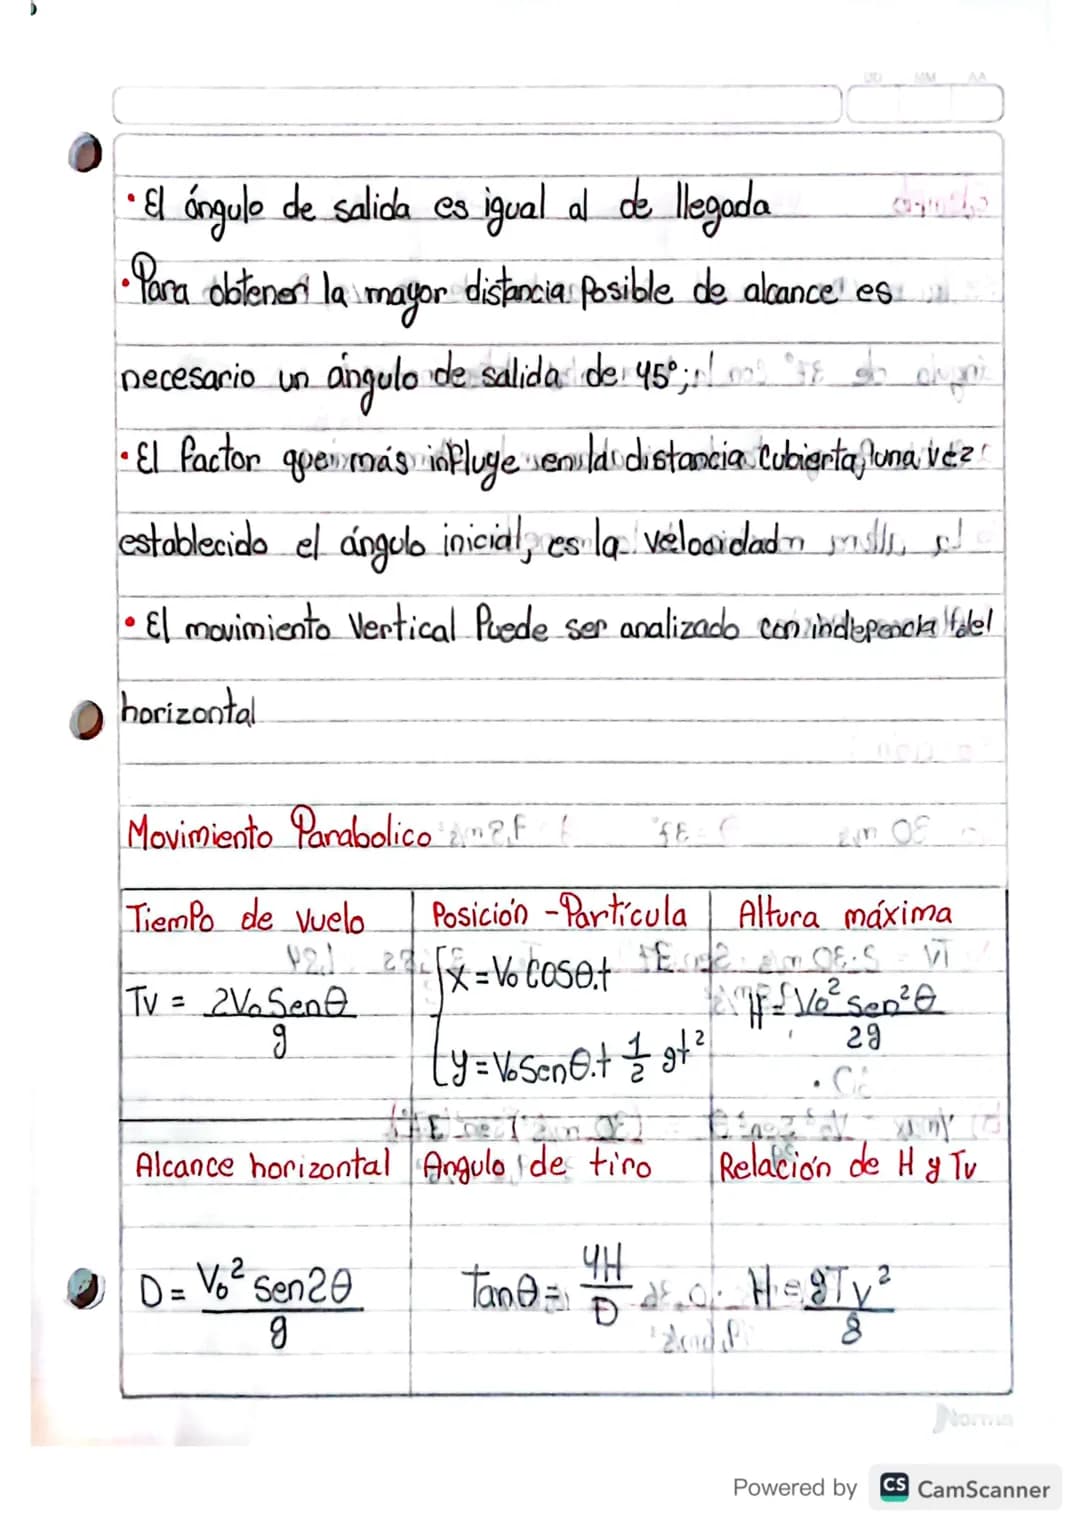 DD MM AA
• El ángulo de salida es igual al de llegada
• Para obtener la mayor distancia Posible de alcance es
necesario un ángulo de salida de 45°;
• El factor que más influye en la distancia Cubierta, una vez
establecido el ángulo inicial, es la velocidad
• El movimiento Vertical Puede ser analizado con del
horizontal
Movimiento Parabolico
Tiempo de vuelo Posición - Partícula Altura máxima
Tv = 2V₀ Senθ / g
x = V₀ Cosθ.t
y = V₀ Senθ.t ½ gt²
H = V₀² sen²θ / 2g
Alcance horizontal Angulo de tiro Relación de H y Tv
D = V₀² sen2θ / g
tanθ = 4H / D
H = gTv² / 8
Norma
Powered by CS CamScanner